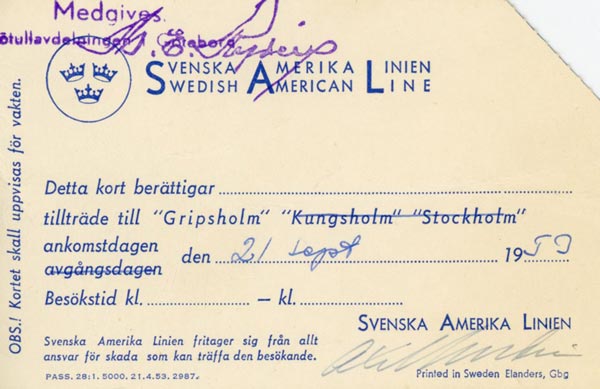 Medgives.
Götullavdelningen i Göteborg
SVENSKA AMERIKA LINIEN
SWEDISH AMERICAN LINE
OBS.! Kortet skall uppvisas för vakten.
Detta kort berättigar
tillträde till "Gripsholm" "Kungsholm" "Stockholm"
ankomstdagen
avgångsdagen
den 21 sept 1953
Besökstid kl. — kl.
SVENSKA AMERIKA LINIEN
Svenska Amerika Linien fritager sig från allt
ansvar för skada som kan träffa den besökande.
PASS. 28:1. 5000. 21.4.53. 2987.
Printed in Sweden Elanders, Gbg